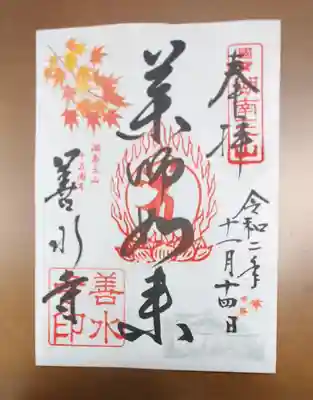 奉拝
令和二年
十一月十四日
薬師如来
湖南三山
善水寺
善水
寺印